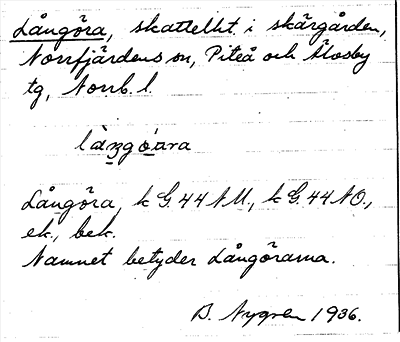 Långöra, skattelht. i skärgården,
Norrfjärdens sn, Piteå och Älvsby
tg, Norrb. l.
Långöra, k G.44 NU., k G.44 NO.,
ek., bek.
Namnet betyder Långörarna.
B. Nygren 1936.